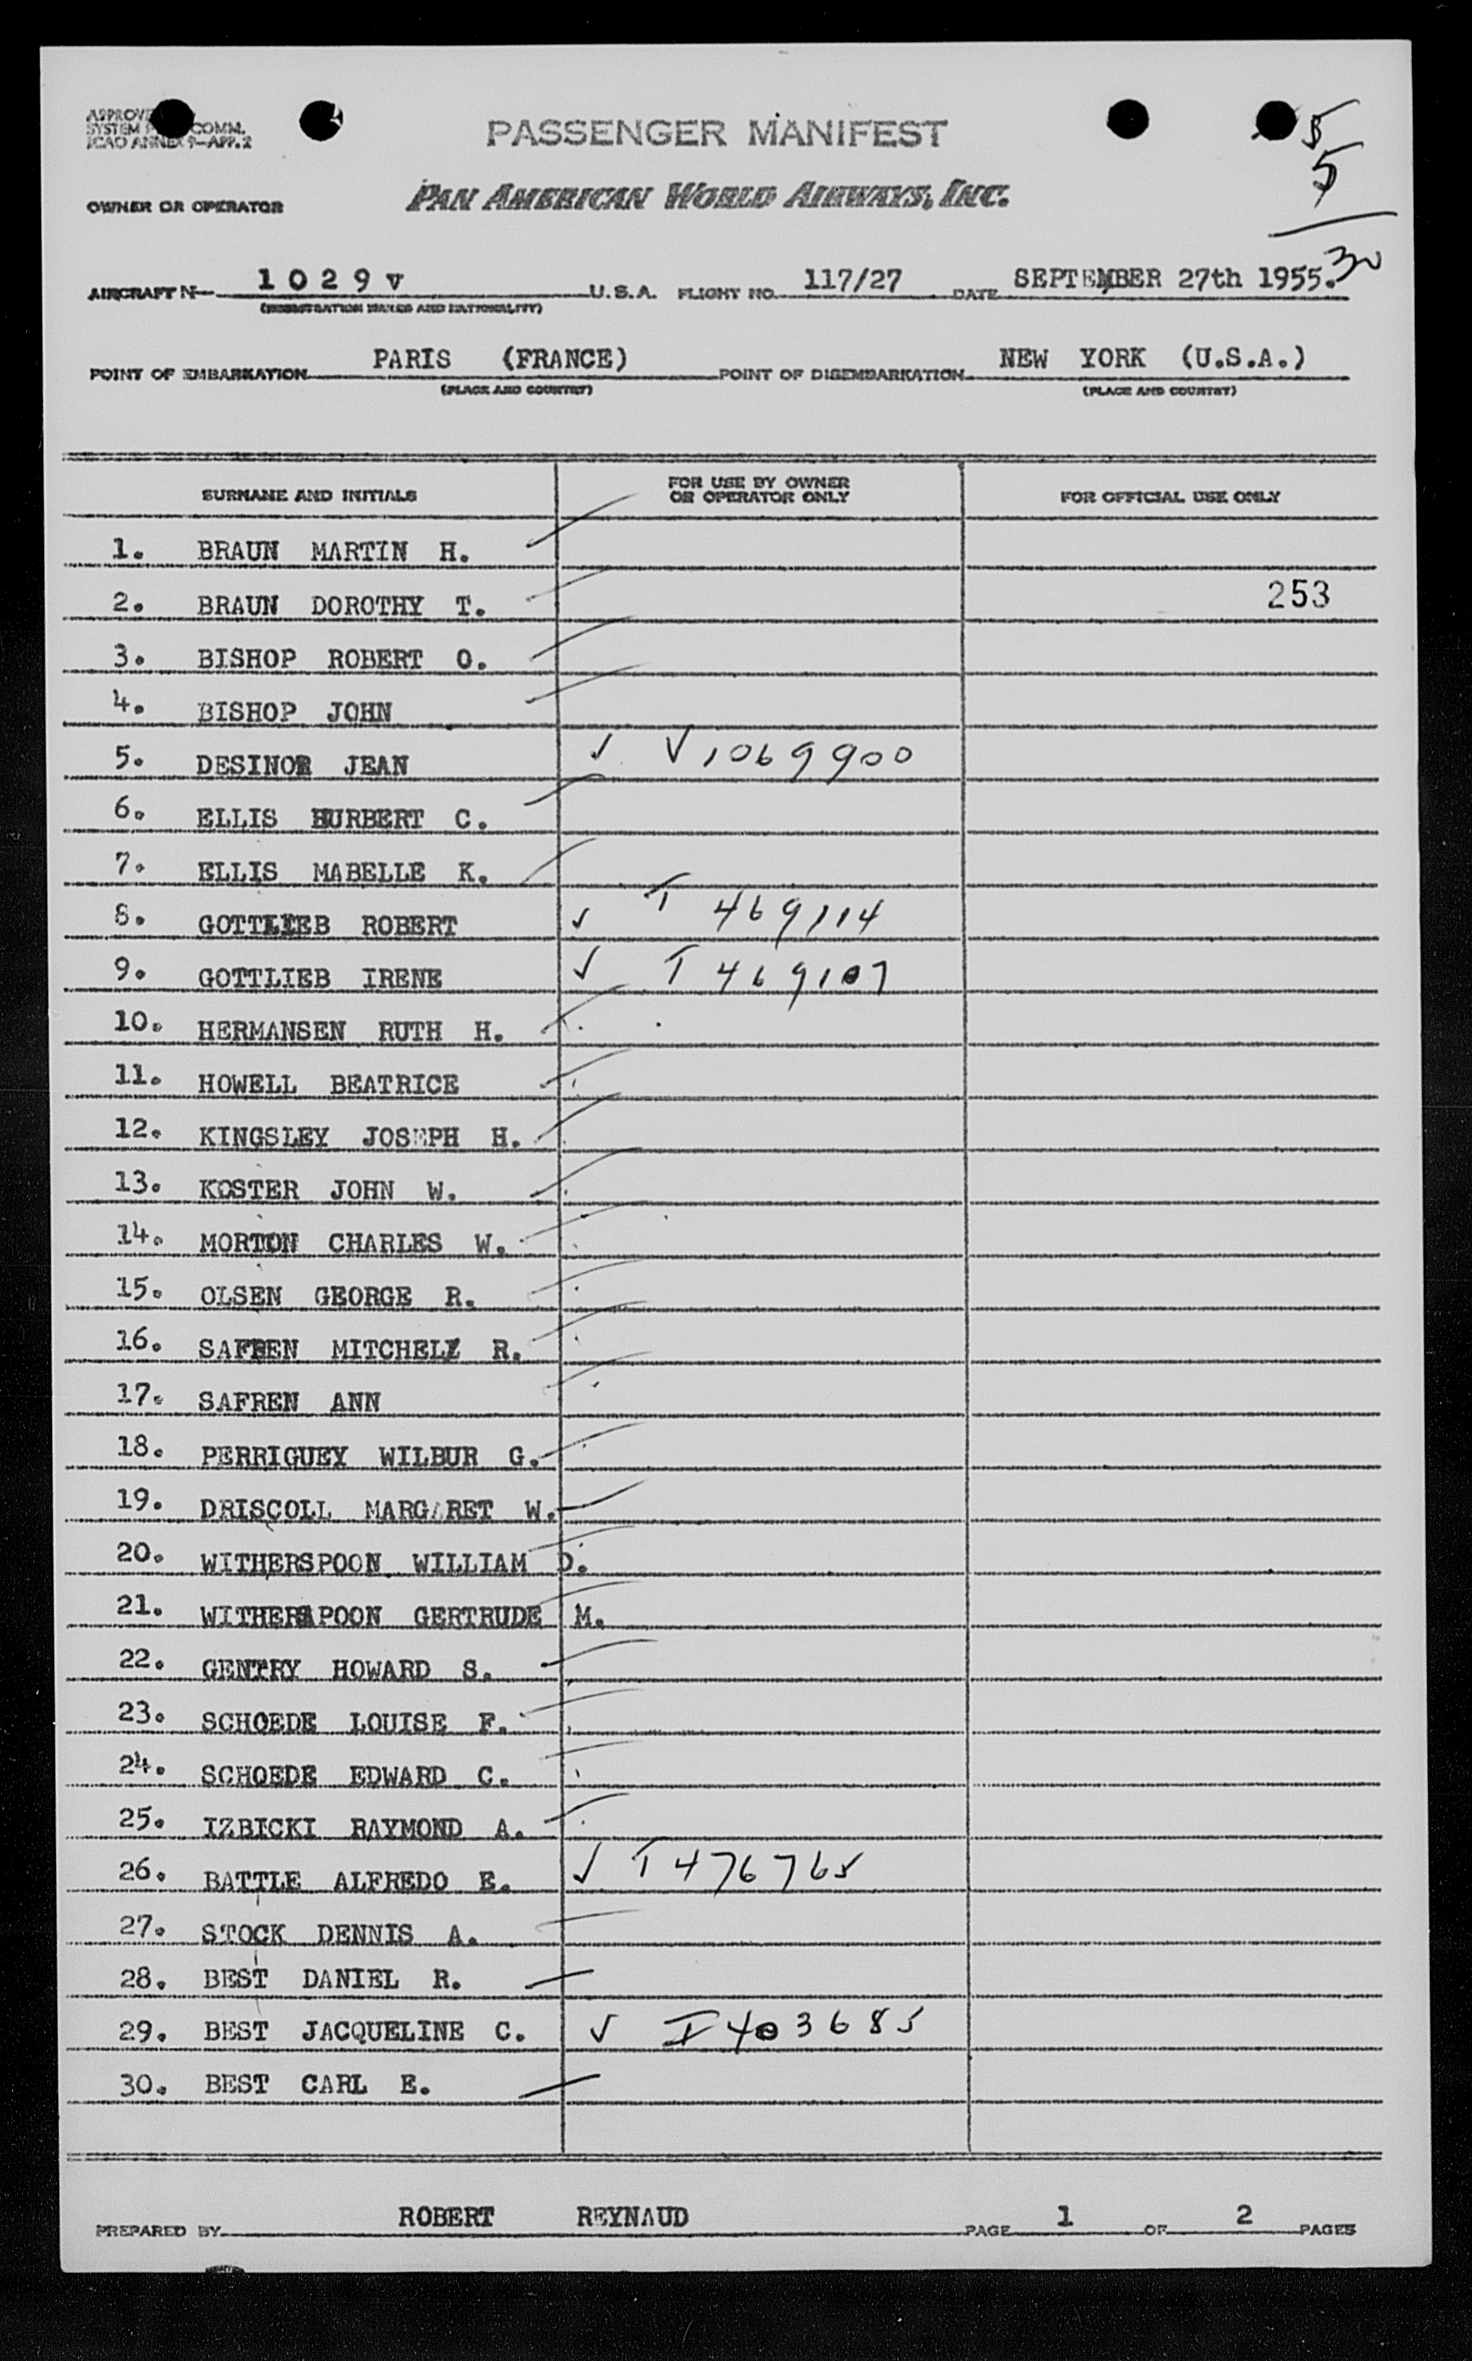 SYSTEM COMM.
ICAO ANNEX 9—APP. 2
PASSENGER MANIFEST
5
5
30
OWNER OR OPERATOR
PAN AMERICAN WORLD AIRWAYS, INC.
AIRCRAFT N— 1029v U.S.A. FLIGHT NO. 117/27 DATE SEPTEMBER 27th 1955.
(REGISTRATION MARKS AND NATIONALITY)
POINT OF EMBARKATION PARIS (FRANCE) POINT OF DISEMBARKATION NEW YORK (U.S.A.)
(PLACE AND COUNTRY) (PLACE AND COUNTRY)
SURNAME AND INITIALS FOR USE BY OWNER OR OPERATOR ONLY FOR OFFICIAL USE ONLY
1. BRAUN MARTIN H.
2. BRAUN DOROTHY T. 253
3. BISHOP ROBERT O.
4. BISHOP JOHN
5. DESINOR JEAN √ V1069900
6. ELLIS HURBERT C.
7. ELLIS MABELLE K.
8. GOTTLIEB ROBERT √ T 469114
9. GOTTLIEB IRENE √ T 469107
10. HERMANSEN RUTH H.
11. HOWELL BEATRICE
12. KINGSLEY JOSEPH H.
13. KOSTER JOHN W.
14. MORTON CHARLES W.
15. OLSEN GEORGE R.
16. SAFREN MITCHELL R.
17. SAFREN ANN
18. PERRIGUEY WILBUR G.
19. DRISCOLL MARGARET W.
20. WITHERSPOON WILLIAM D.
21. WITHERSPOON GERTRUDE M.
22. GENTRY HOWARD S.
23. SCHOEDE LOUISE F.
24. SCHOEDE EDWARD C.
25. IZBICKI RAYMOND A.
26. BATTLE ALFREDO E. √ T476765
27. STOCK DENNIS A.
28. BEST DANIEL R.
29. BEST JACQUELINE C. √ I403685
30. BEST CARL E.
PREPARED BY ROBERT REYNAUD PAGE 1 OF 2 PAGES